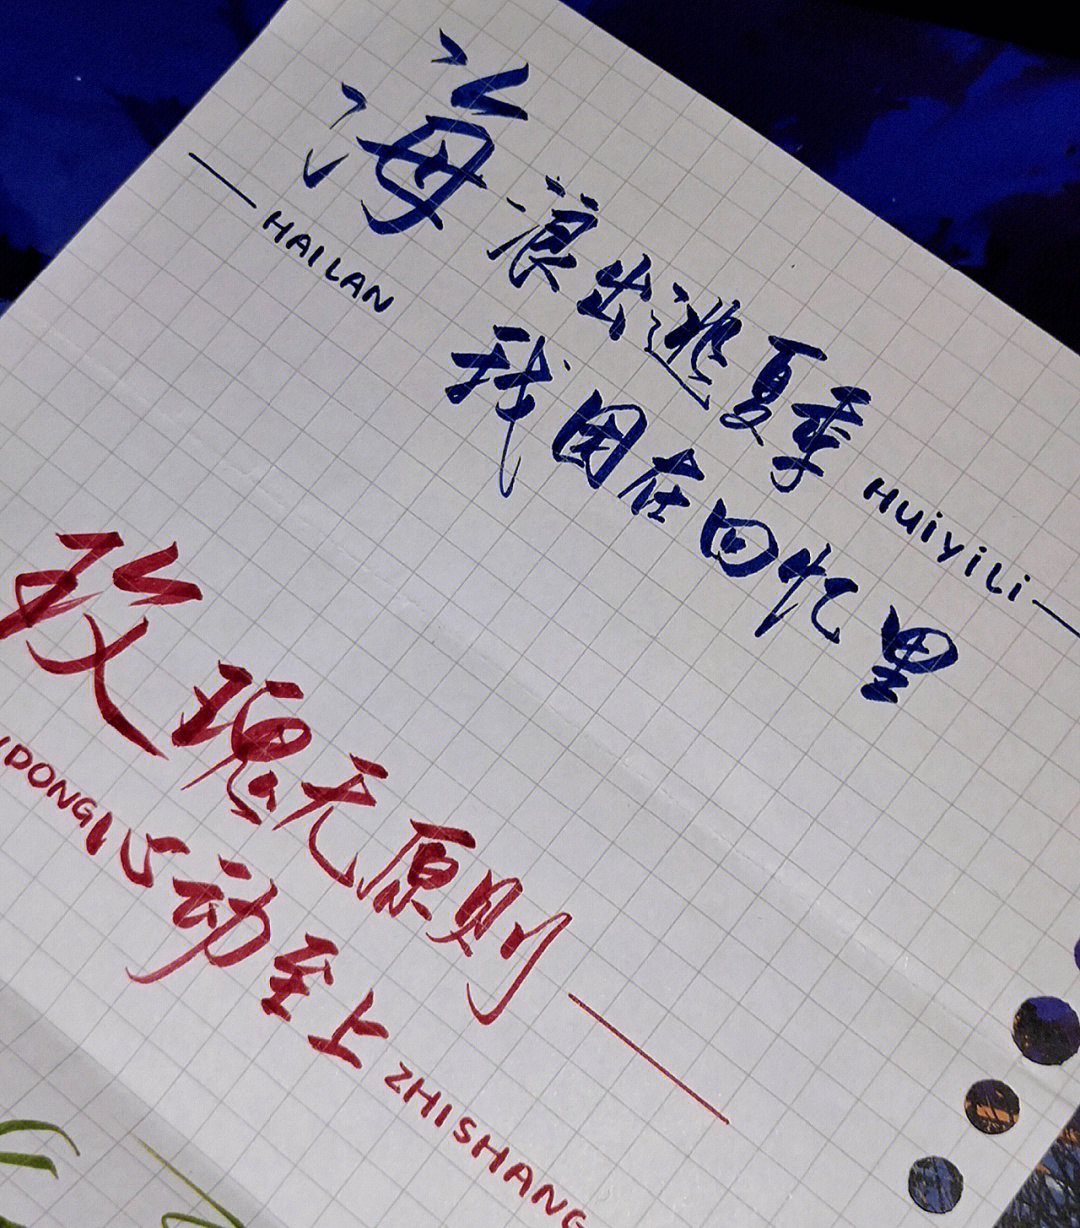 海浪出逃夏季
HAILAN
我困在回忆里
HUIYILI
玫瑰无原则
IDONG
心动至上
ZHISHANG